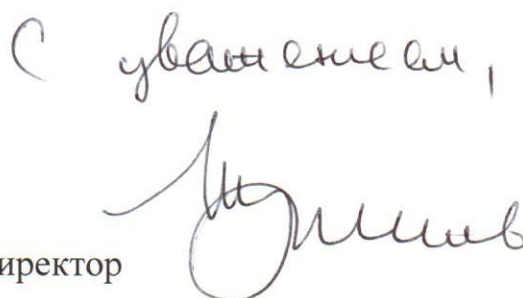 С уважением,
иректор